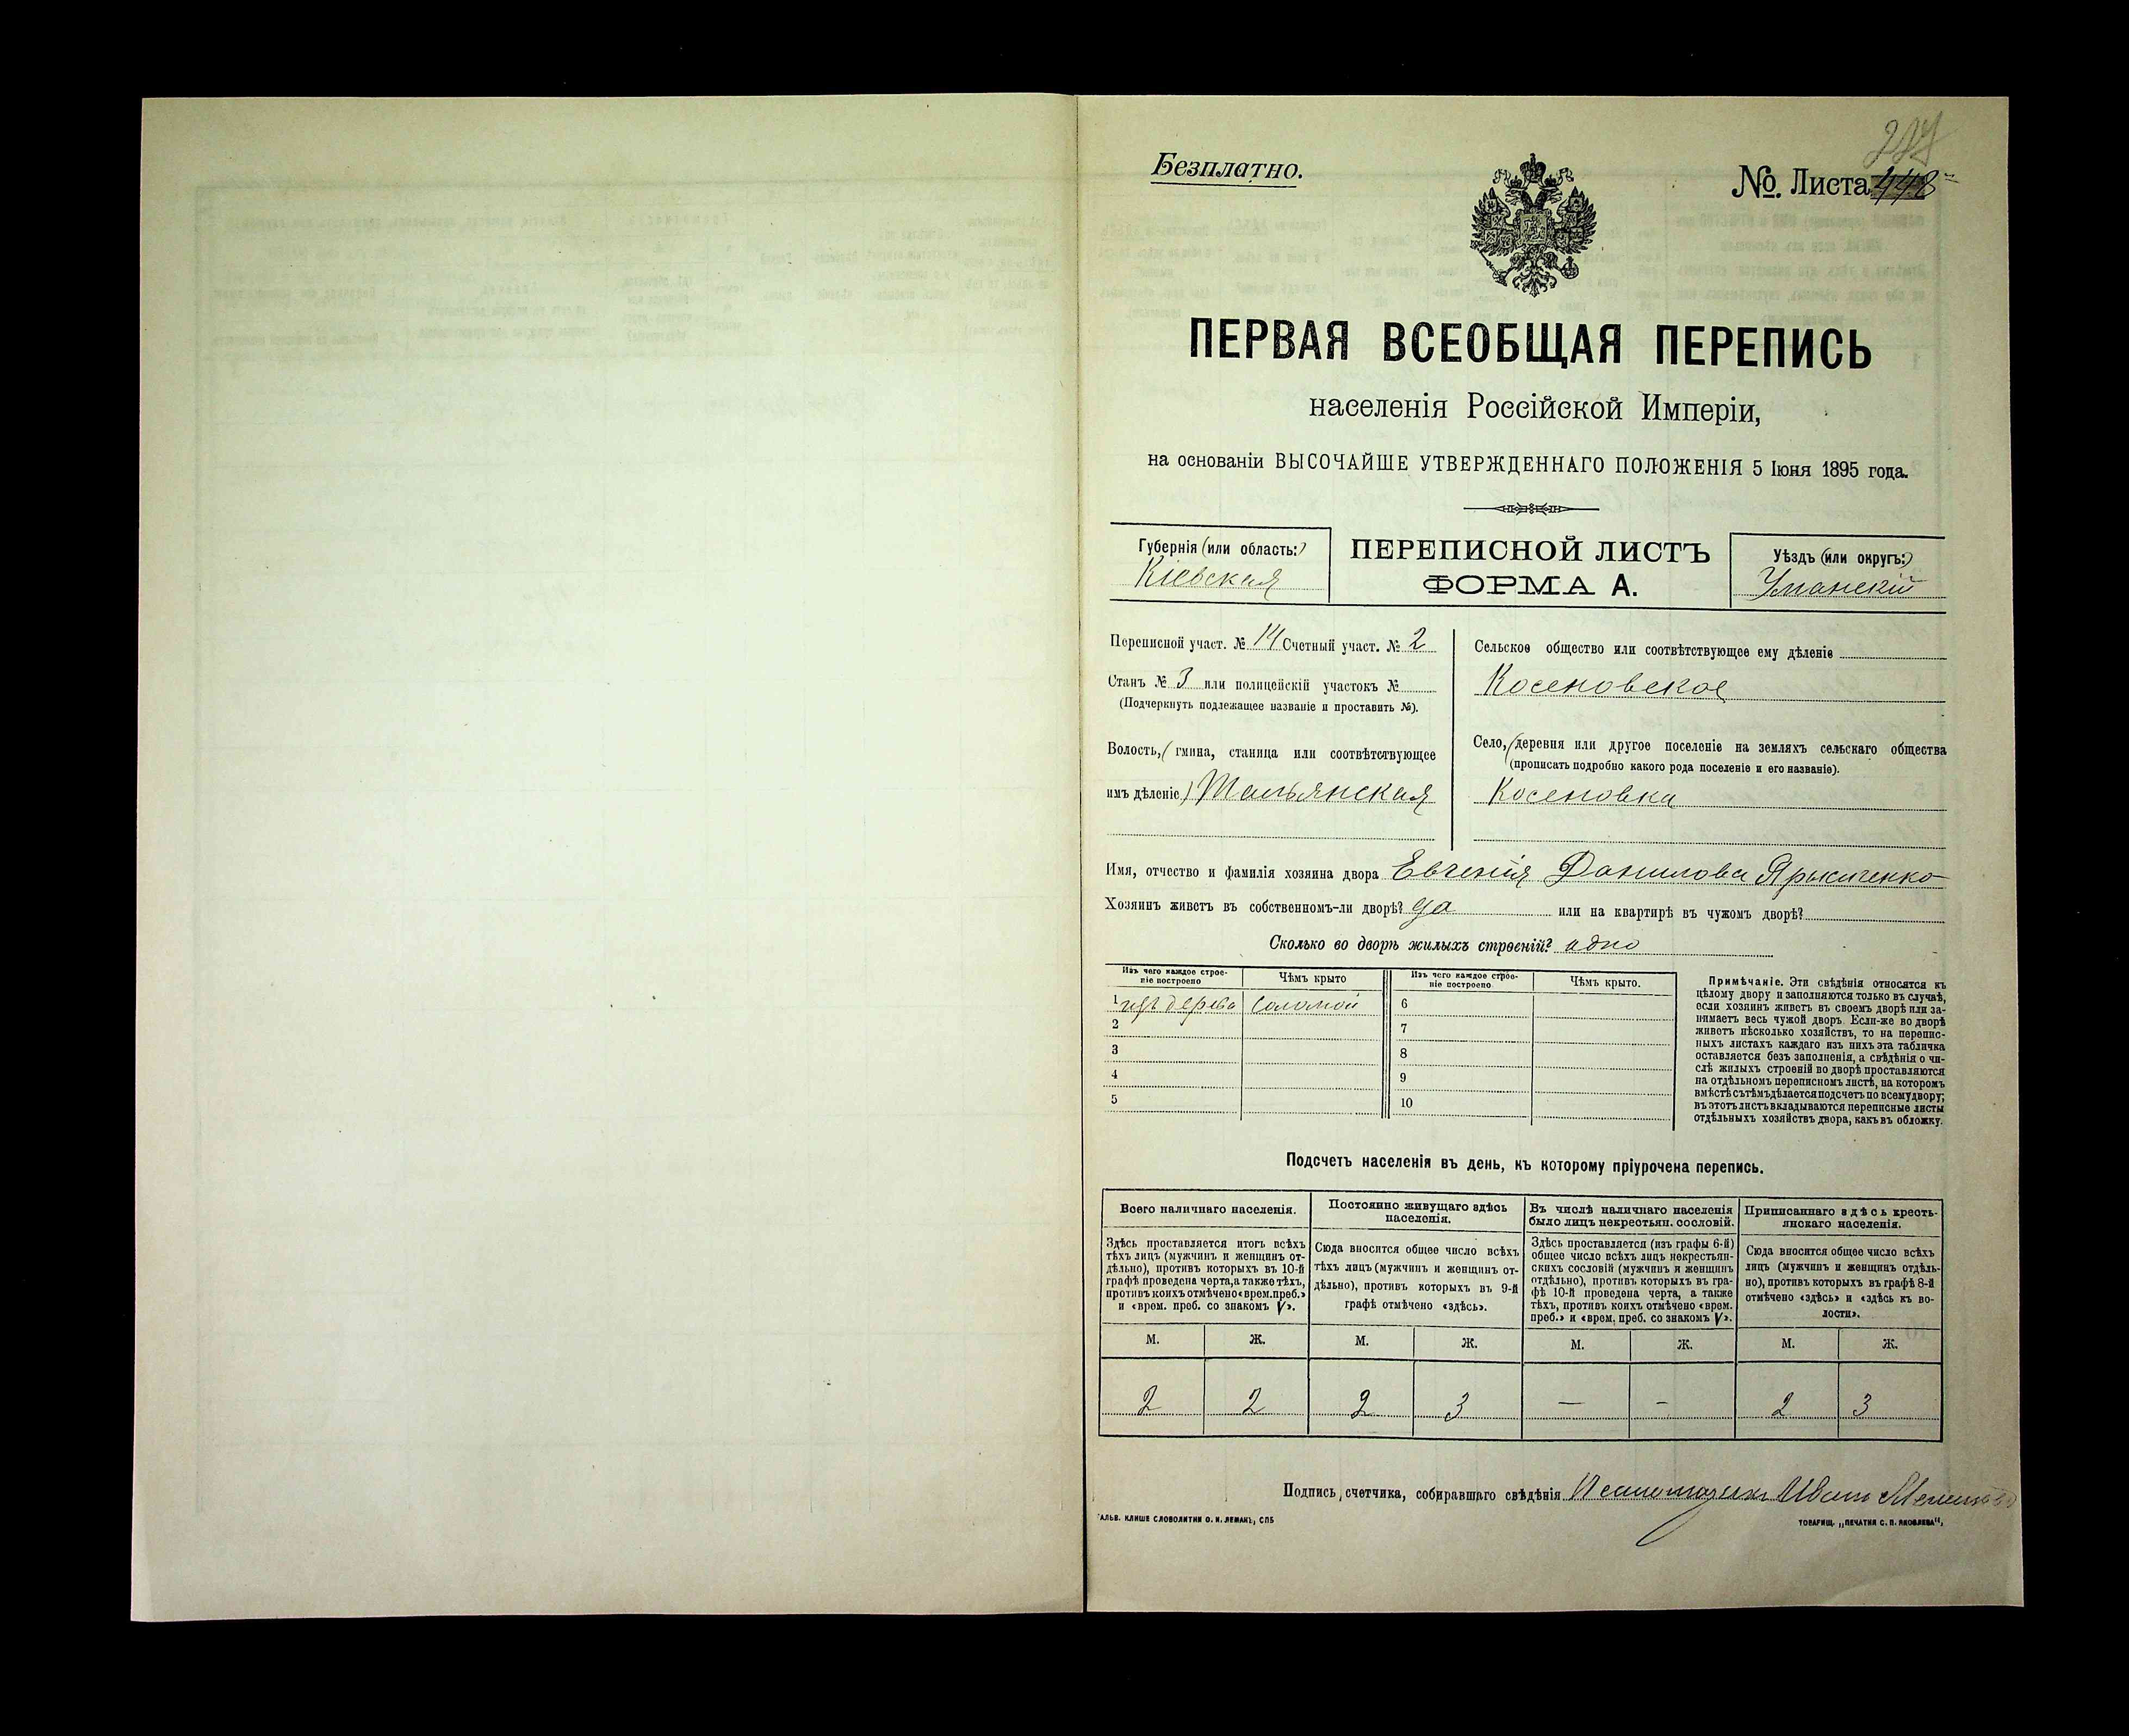 Безплатно.
№. Листа 448
ПЕРВАЯ ВСЕОБЩАЯ ПЕРЕПИСЬ
населенія Россійской Имперіи,
на основаніи ВЫСОЧАЙШЕ УТВЕРЖДЕННАГО ПОЛОЖЕНІЯ 5 Іюня 1895 года.
Губернія (или область:)
Кіевская
ПЕРЕПИСНОЙ ЛИСТЪ
ФОРМА А.
Уѣздъ (или округъ:)
Уманскій
Переписной участ. № 14 Счетный участ. № 2
Станъ № 3 или полицейскій участокъ №
(Подчеркнуть подлежащее названіе и проставить №).
Волость, (гмина, станица или соотвѣтствующее
имъ дѣленіе) Тальянская
Сельское общество или соотвѣтствующее ему дѣленіе
Косеновское
Село, (деревня или другое поселеніе на земляхъ сельскаго общества
(прописать подробно какого рода поселеніе и его названіе).
Косеновка
Имя, отчество и фамилія хозяина двора Евгенія Данилова
Хозяинъ живетъ въ собственномъ-ли дворѣ? да или на квартирѣ въ чужомъ дворѣ?
Сколько во дворѣ жилыхъ строеній? одно
Изъ чего каждое строе-
ніе построено
Чѣмъ крыто
Изъ чего каждое строе-
ніе построено
Чѣмъ крыто.
1 изъ дерева соломой 6
2 7
3 8
4 9
5 10
Примѣчаніе. Эти свѣдѣнія относятся къ
цѣлому двору и заполняются только въ случаѣ,
если хозяинъ живетъ въ своемъ дворѣ или за-
нимаетъ весь чужой дворъ. Если-же во дворѣ
живетъ нѣсколько хозяйствъ, то на перепис-
ныхъ листахъ каждаго изъ нихъ эта табличка
оставляется безъ заполненія, а свѣдѣнія о чи-
слѣ жилыхъ строеній во дворѣ проставляются
на отдѣльномъ переписномъ листѣ, на которомъ
вмѣстѣ съ тѣмъ дѣлается подсчетъ по всему двору;
въ этотъ листъ вкладываются переписные листы
отдѣльныхъ хозяйствъ двора, какъ въ обложку.
Подсчетъ населенія въ день, къ которому пріурочена перепись.
Всего наличнаго населенія.
Здѣсь проставляется итогъ всѣхъ
тѣхъ лицъ (мужчинъ и женщинъ от-
дѣльно), противъ которыхъ въ 10-й
графѣ проведена черта, а также тѣхъ,
противъ коихъ отмѣчено «врем. преб.»
и «врем. преб. со знакомъ V».
Постоянно живущаго здѣсь
населенія.
Сюда вносится общее число всѣхъ
тѣхъ лицъ (мужчинъ и женщинъ от-
дѣльно), противъ которыхъ въ 9-й
графѣ отмѣчено «здѣсь».
Въ числѣ наличнаго населенія
было лицъ некрестьян. сословій.
Здѣсь проставляется (изъ графы 6-й)
общее число всѣхъ лицъ некрестьян-
скихъ сословій (мужчинъ и женщинъ
отдѣльно), противъ которыхъ въ гра-
фѣ 10-й проведена черта, а также
тѣхъ, противъ коихъ отмѣчено «врем.
преб.» и «врем. преб. со знакомъ V».
Приписаннаго здѣсь кресть-
янскаго населенія.
Сюда вносится общее число всѣхъ
лицъ (мужчинъ и женщинъ отдѣль-
но), противъ которыхъ въ графѣ 8-й
отмѣчено «здѣсь» и «здѣсь къ во-
лости».
М. Ж. М. Ж. М. Ж. М. Ж.
2 2 2 3 — - 2 3
Подпись счетчика, собиравшаго свѣдѣнія Псаломщикъ Иванъ
ГАЛЬВ. КЛИШЕ СЛОВОЛИТНИ О. И. ЛЕМАНЪ, СПБ
ТОВАРИЩ. „ПЕЧАТНЯ С. П. ЯКОВЛЕВА",